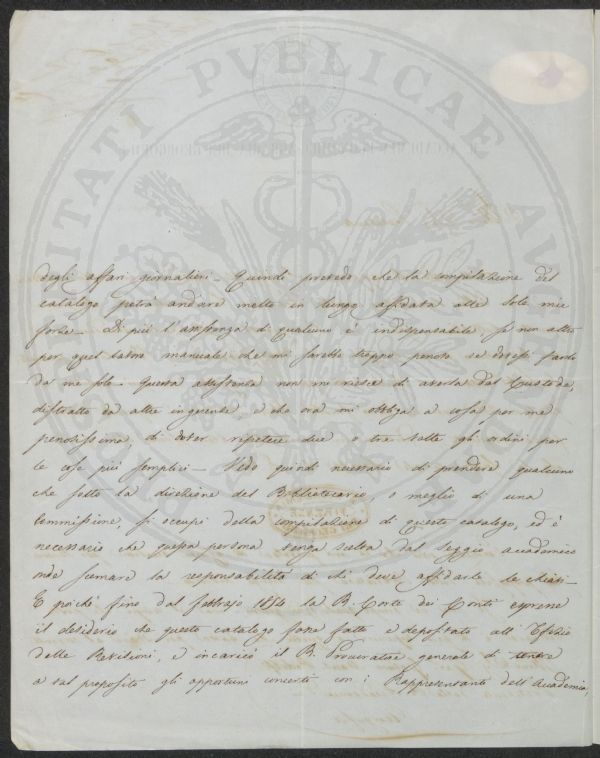 PROSPERITATI PVBLICAE AVGENDAE
degli affari giornalieri. Quindi prevedo che la compilazione del
catalogo potrà andare molto in lungo affidata alle sole mie
forze. Di più l'assistenza di qualcuno è indispensabile se non altro
per quel lavoro manuale che mi sarebbe troppo penoso se dovessi farlo
da me solo. Questa assistenza non mi riesce di averla dal Custode,
distratto da altre ingerenze e che ora mi obbliga a cosa per me
penosissima, di dover repetere due o tre volte gli ordini per
le cose più semplici. Vedo quindi necessario di prendere qualcuno
che sotto la direzione del Bibliotecario, o meglio di una
Commissione, si occupi della compilazione di questo catalogo, ed è
necessario che questa persona venga scelta dal seggio accademico
onde scemare la responsabilità di chi deve affidarle le chiavi.
E poiché fino dal febbrajo 1854 la R. Corte dei Conti espresse
il desiderio che questo catalogo fosse fatto e depositato all'Ufizio
delle Revisioni, e incaricò il R. Procuratore generale di tenere
a tal proposito gli opportuni concerti con i Rappresentanti dell'Accademia,